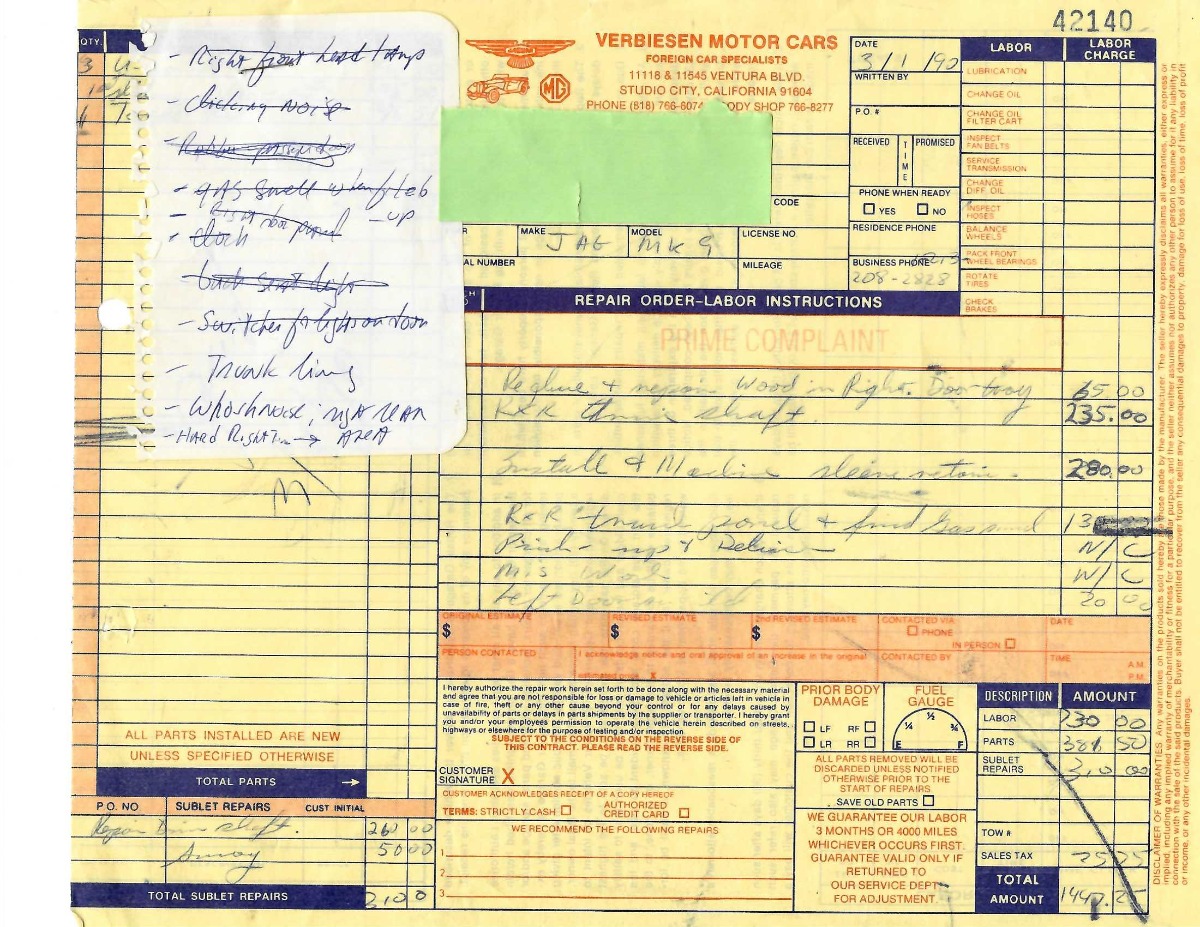 42140
QTY.
3 U-
1
- Right front head lamp
- clicking noise
- gas smell when filled
- Right door panel -up
- clock
- back seat light
- Switches for lights on doors
- Trunk lining
- Whosh noise; right rear
- Hard Right... → Area
VERBIESEN MOTOR CARS
FOREIGN CAR SPECIALISTS
11118 & 11545 VENTURA BLVD.
STUDIO CITY, CALIFORNIA 91604
PHONE (818) 766-6074 BODY SHOP 766-8277
MG
CODE
MAKE JAG
MODEL MK 9
LICENSE NO
AL NUMBER
MILEAGE
DATE 3/1/90
WRITTEN BY
P.O. #
RECEIVED
TIME
PROMISED
PHONE WHEN READY
YES NO
RESIDENCE PHONE
BUSINESS PHONE 213-
208-2828
LABOR
LABOR CHARGE
LUBRICATION
CHANGE OIL
CHANGE OIL FILTER CART
INSPECT FAN BELTS
SERVICE TRANSMISSION
CHANGE DIFF. OIL
INSPECT HOSES
BALANCE WHEELS
PACK FRONT WHEEL BEARINGS
ROTATE TIRES
CHECK BRAKES
REPAIR ORDER-LABOR INSTRUCTIONS
PRIME COMPLAINT
Reglue + repair Wood in Right Door 65.00
R&R shaft 235.00
Install & Machine sleeve 280.00
R&R trunk panel + find Gas 13
N/C
Mis Wood N/C
Left Door 20 00
ORIGINAL ESTIMATE
$
REVISED ESTIMATE
$
2nd REVISED ESTIMATE
$
CONTACTED VIA:
PHONE
IN PERSON
DATE
PERSON CONTACTED
I acknowledge notice and oral approval of an increase in the original estimated price. X
CONTACTED BY
TIME
A.M.
P.M.
I hereby authorize the repair work herein set forth to be done along with the necessary material
and agree that you are not responsible for loss or damage to vehicle or articles left in vehicle in
case of fire, theft or any other cause beyond your control or for any delays caused by
unavailability of parts or delays in parts shipments by the supplier or transporter. I hereby grant
you and/or your employees permission to operate the vehicle herein described on streets,
highways or elsewhere for the purpose of testing and/or inspection.
SUBJECT TO THE CONDITIONS ON THE REVERSE SIDE OF
THIS CONTRACT. PLEASE READ THE REVERSE SIDE.
CUSTOMER
SIGNATURE X
CUSTOMER ACKNOWLEDGES RECEIPT OF A COPY HEREOF
TERMS: STRICTLY CASH
AUTHORIZED CREDIT CARD
WE RECOMMEND THE FOLLOWING REPAIRS
1
2
3
PRIOR BODY DAMAGE
LF RF
LR RR
FUEL GAUGE
E ¼ ½ ¾ F
ALL PARTS REMOVED WILL BE
DISCARDED UNLESS NOTIFIED
OTHERWISE PRIOR TO THE
START OF REPAIRS
SAVE OLD PARTS
WE GUARANTEE OUR LABOR
3 MONTHS OR 4000 MILES
WHICHEVER OCCURS FIRST.
GUARANTEE VALID ONLY IF
RETURNED TO
OUR SERVICE DEPT
FOR ADJUSTMENT.
DESCRIPTION AMOUNT
LABOR 730 00
PARTS 381 50
SUBLET REPAIRS 310 00
TOW #
SALES TAX 25 75
TOTAL AMOUNT 1447.25
ALL PARTS INSTALLED ARE NEW
UNLESS SPECIFIED OTHERWISE
TOTAL PARTS →
P.O. NO SUBLET REPAIRS CUST INITIAL
Repair Driv shaft. 260 00
50 00
TOTAL SUBLET REPAIRS 310 0
DISCLAIMER OF WARRANTIES. Any warranties on the products sold hereby are those made by the manufacturer. The seller hereby expressly disclaims all warranties, either express or
implied, including any implied warranty of merchantability or fitness for a particular purpose, and the seller neither assumes nor authorizes any other person to assume for it any liability in
connection with the sale of the said products. Buyer shall not be entitled to recover from the seller any consequential damages to property, damages for loss of use, loss of time, loss of profit
or income, or any other incidental damages.